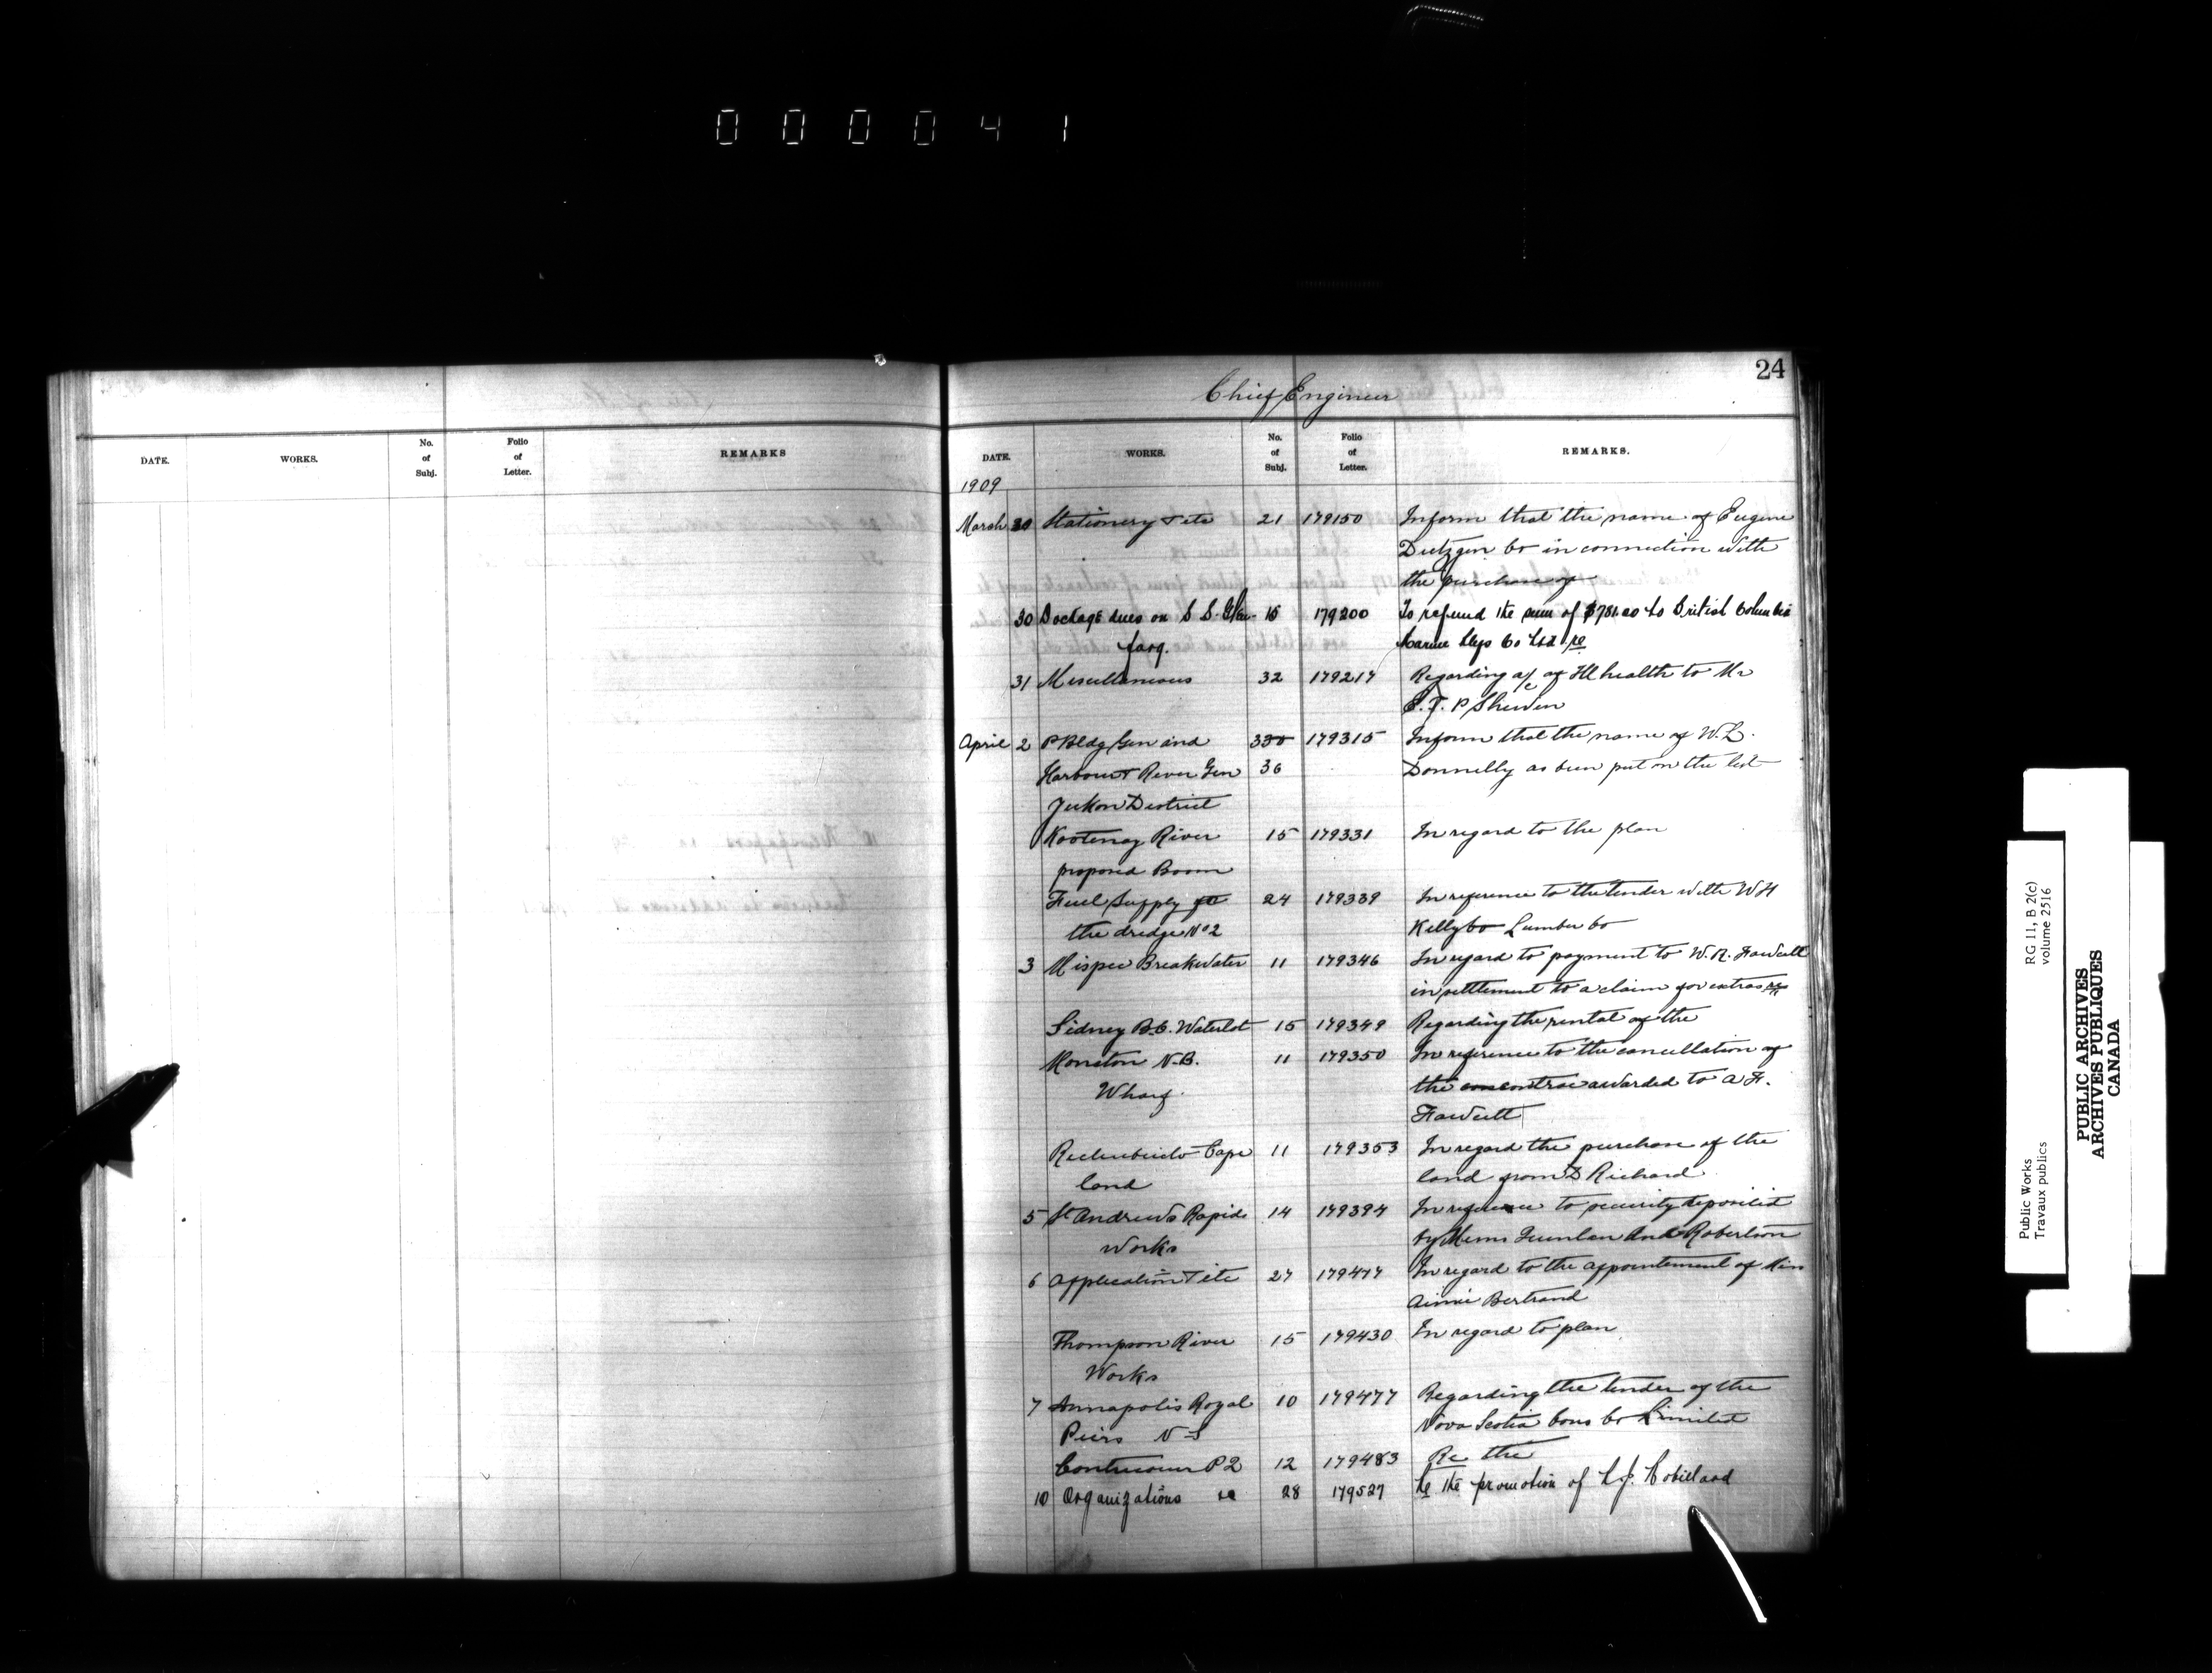 0 0 0 0 4 1
DATE. WORKS. No. of Subj. Folio of Letter. REMARKS
24
Chief Engineer
DATE. WORKS. No. of Subj. Folio of Letter. REMARKS.
1909
March 30 Stationery & etc 21 179150 Inform that the name of Eugene
Dietzgen Co in connection with
the purchase of
30 Dockage dues on S S. Glen- 15 179200 To refund the sum of $781.20 to British Columbia
farg. Marine Slips Co Ltd re
31 Miscellaneous 32 179217 Regarding a/c of Ill health to Mr
E. T. P Shewen
April 2 P Bldg Gen and 330 179315 Inform that the name of W. L.
Harbour & River Gen 36 Donnelly as been put on the list
Yukon District
Kootenay River 15 179331 In regard to the plan
proposed Boom
Fuel Supply 24 179339 In reference to the tender with W H
the dredge No 2 Kelly Co Lumber Co
3 Mispec Breakwater 11 179346 In regard to payment to W. R. Fawcett
in settlement to a claim for extras
Sidney B.C. Waterlot 15 179349 Regarding the rental of the
Moncton N.B. 11 179350 In reference to the cancellation of
Wharf the awarded to A F.
Fawcett
Richibucto Cape 11 179353 In regard the purchase of the
land land from D Richard
5 St Andrews Rapids 14 179394 In reference to security deposited
Works by Messrs Quinlan And Robertson
6 Application & etc 27 179417 In regard to the appointement of Miss
Aimie Bertrand
Thompson River 15 179430 In regard to plan
Works
7 Annapolis Royal 10 179477 Regarding the tender of the
Piers N S Nova Scotia Cons Co Limited
P2 12 179483 Re the
10 Organizations re 28 179527 Re the promotion of L. J. Robillard
Public Works
Travaux publics
RG 11, B 2(c)
volume 2516
PUBLIC ARCHIVES
ARCHIVES PUBLIQUES
CANADA